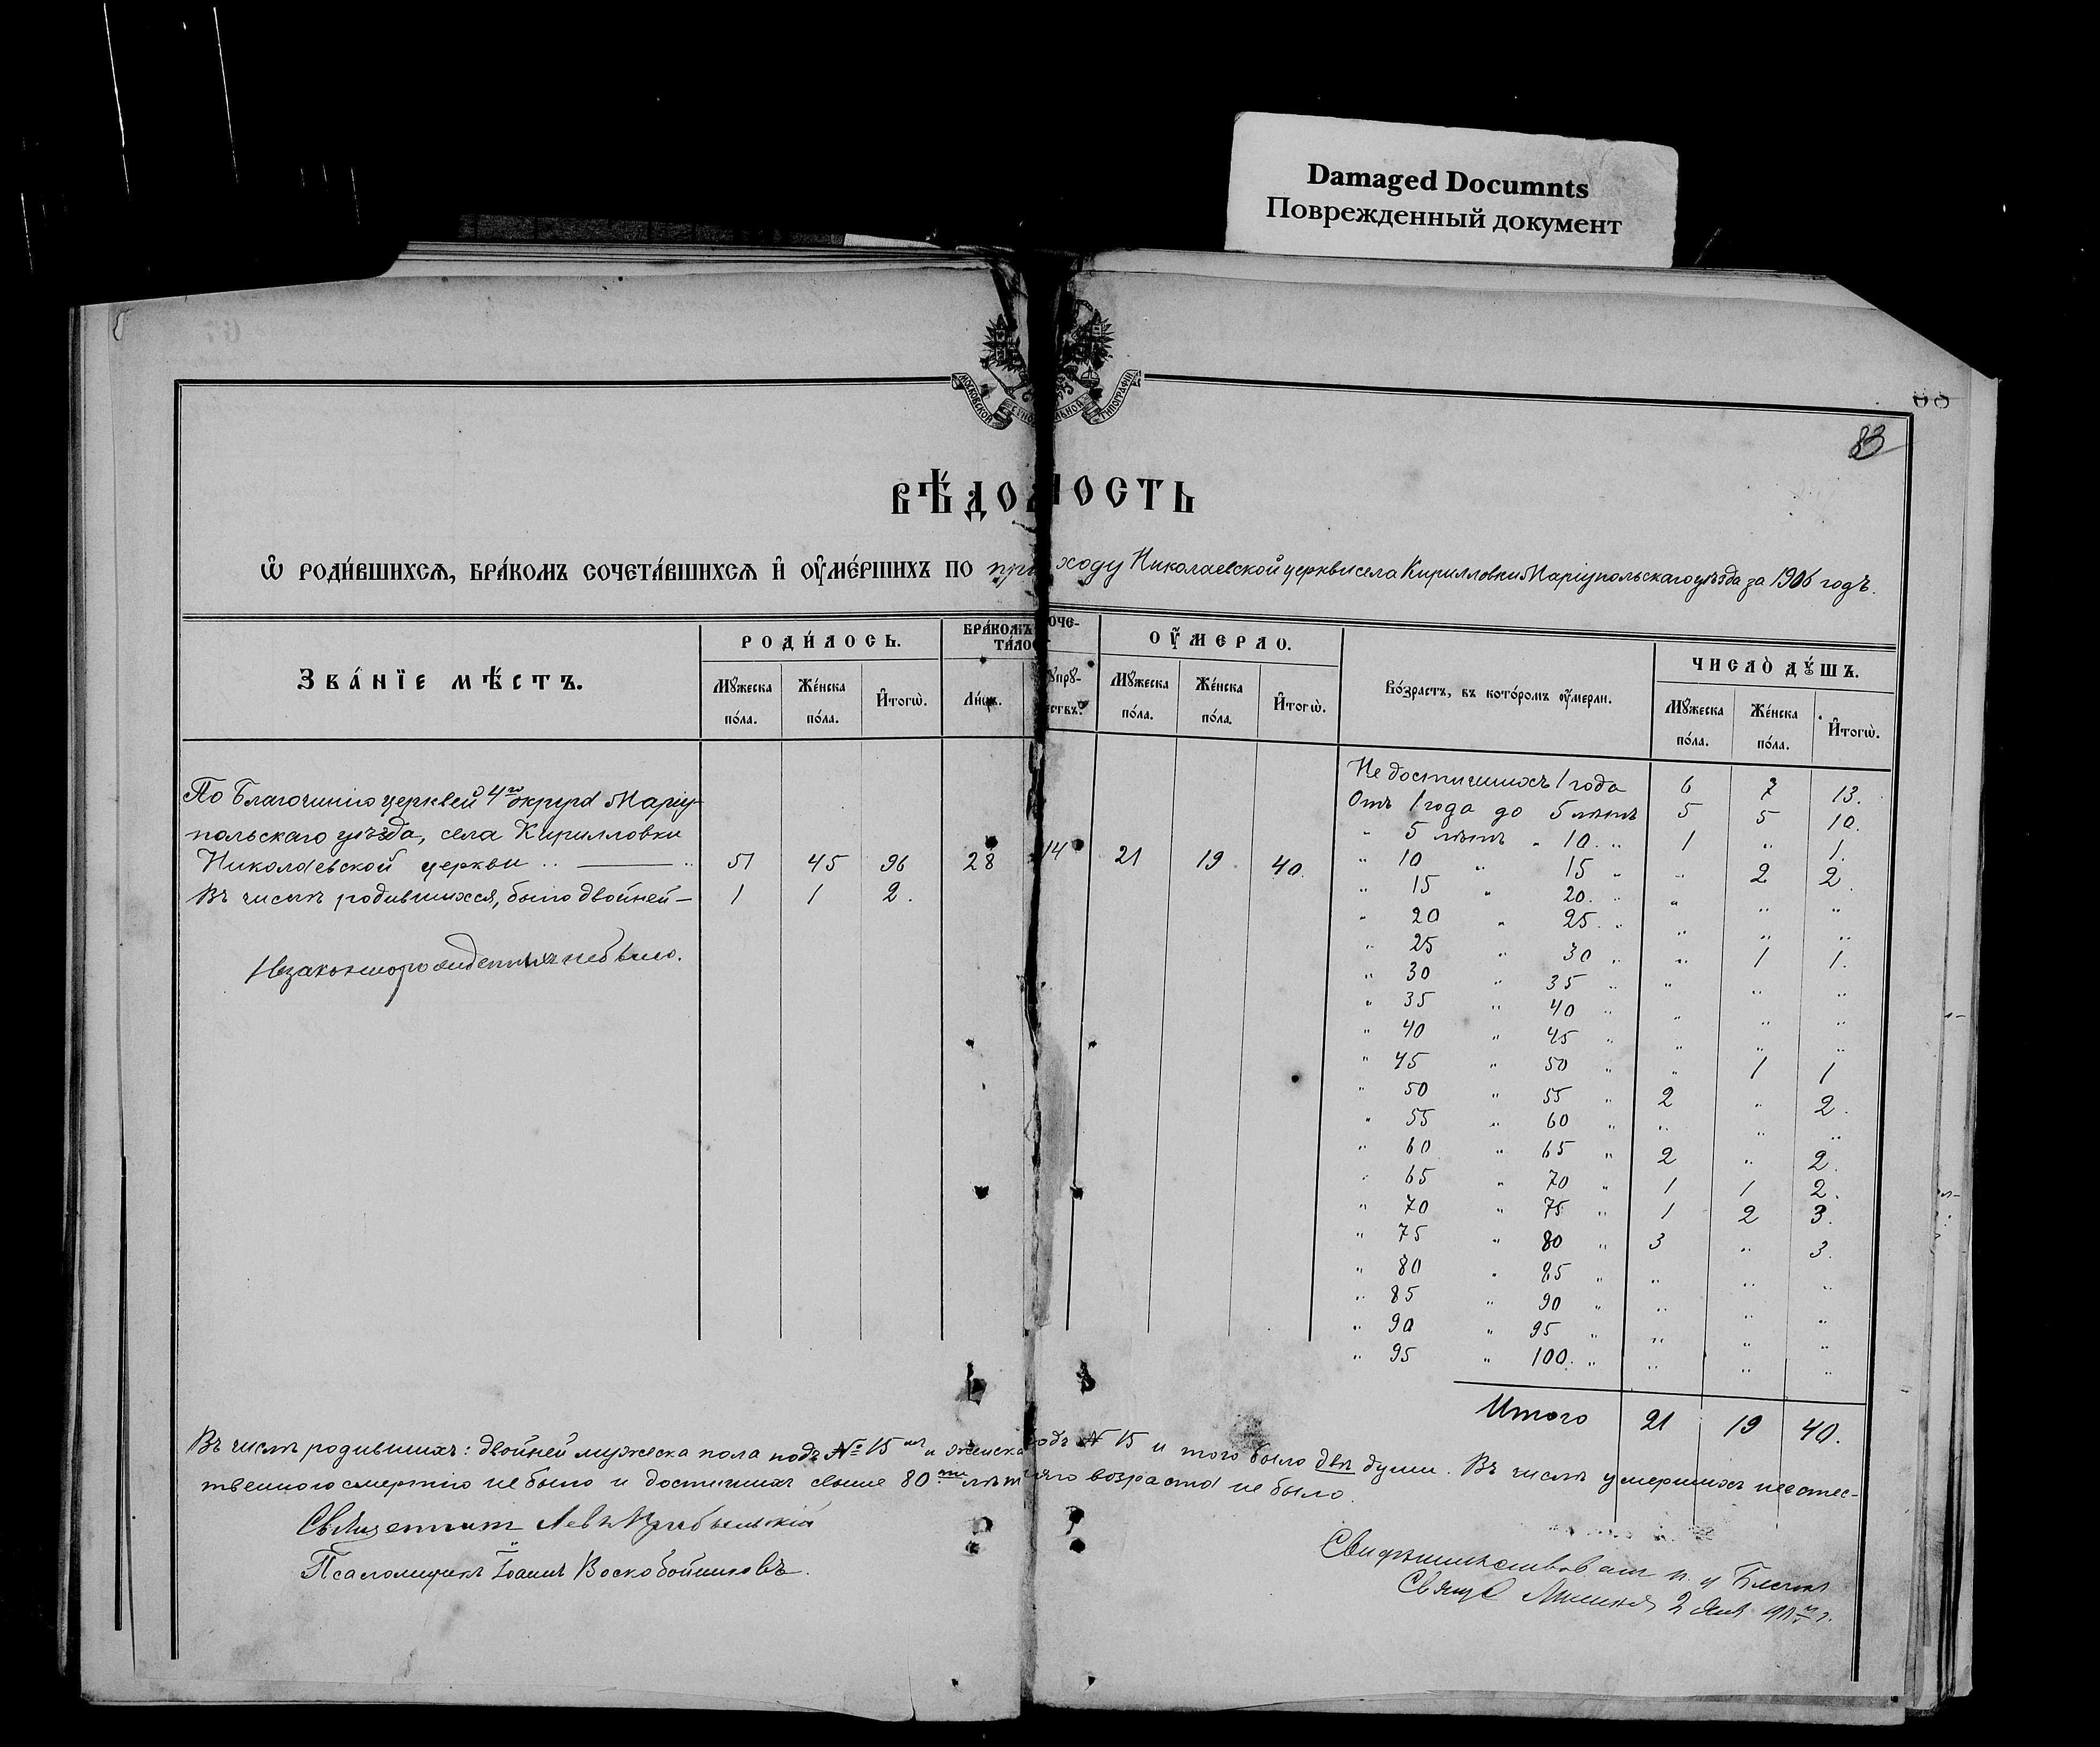 Damaged Documnts
Поврежденный документ
МОСКОВСКОЙ СѴНОДАЛЬНОЙ ТИПОГРАФІИ
83
ВѢ́ДОМОСТЬ
Ѡ҆ РОДИ́ВШИХСѦ, БРА́КОМЪ СОЧЕТА́ВШИХСѦ И҆ ОУ҆МЕ́РШИХЪ ПО приходу Николаевской церкви села Кирилловки Маріупольскаго уѣзда за 1906 годъ.
ЗВА́НЇЕ МѢ́СТЪ.
РОДИ́ЛОСЬ.
Мꙋ́жеска по́ла.
Же́нска по́ла.
И҆тогѡ̀.
БРА́КОМЪ СОЧЕТА́ЛОСЬ
Ли́цъ.
Сꙋпрꙋ́жествъ.
ОУ҆́МЕРЛО.
Мꙋ́жеска по́ла.
Же́нска по́ла.
И҆тогѡ̀.
Во́зрастъ, въ кото́ромъ оу҆́мерли.
ЧИСЛО̀ ДꙊ́ШЪ.
Мꙋ́жеска по́ла.
Же́нска по́ла.
И҆тогѡ̀.
По Благочинію церквей 4го округа Маріу-
польскаго уѣзда, села Кирилловки
Николаевской церкви .. —— .. 51 45 96 28 14 21 19 40.
Въ числѣ родившихся, было двойней — 1 1 2.
Незаконнорожденныхъ не было.
Не достигшихъ 1 года 6 7 13.
Отъ 1 года до 5 лѣтъ 5 5 10.
" 5 лѣтъ " 10 " 1 " 1.
" 10 " 15 " " 2 2.
" 15 " 20 " " " "
" 20 " 25 " " " "
" 25 " 30 " " 1 1.
" 30 " 35 " " " "
" 35 " 40 " " " "
" 40 " 45 " " " "
" 45 " 50 " " 1 1
" 50 " 55 " 2 " 2.
" 55 " 60 " " " "
" 60 " 65 " 2 " 2.
" 65 " 70 " 1 1 2.
" 70 " 75 " 1 2 3.
" 75 " 80 " 3 " 3.
" 80 " 85 " " " "
" 85 " 90 " " " "
" 90 " 95 " " " "
" 95 " 100 " " " "
Итого 21 19 40.
Въ числѣ родившихъ: двойней мужеска пола подъ № 15 и женска подъ № 15 и того было двѣ души. Въ числѣ умершихъ неестес-
твенною смертію не было и достигшихъ свыше 80ти лѣтняго возраста не было.
Священникъ Левъ
Псаломщикъ Іоаннъ Воскобойниковъ.
Свидѣтельствовалъ и. д. Благоч.
Свящ. 2 Янв.